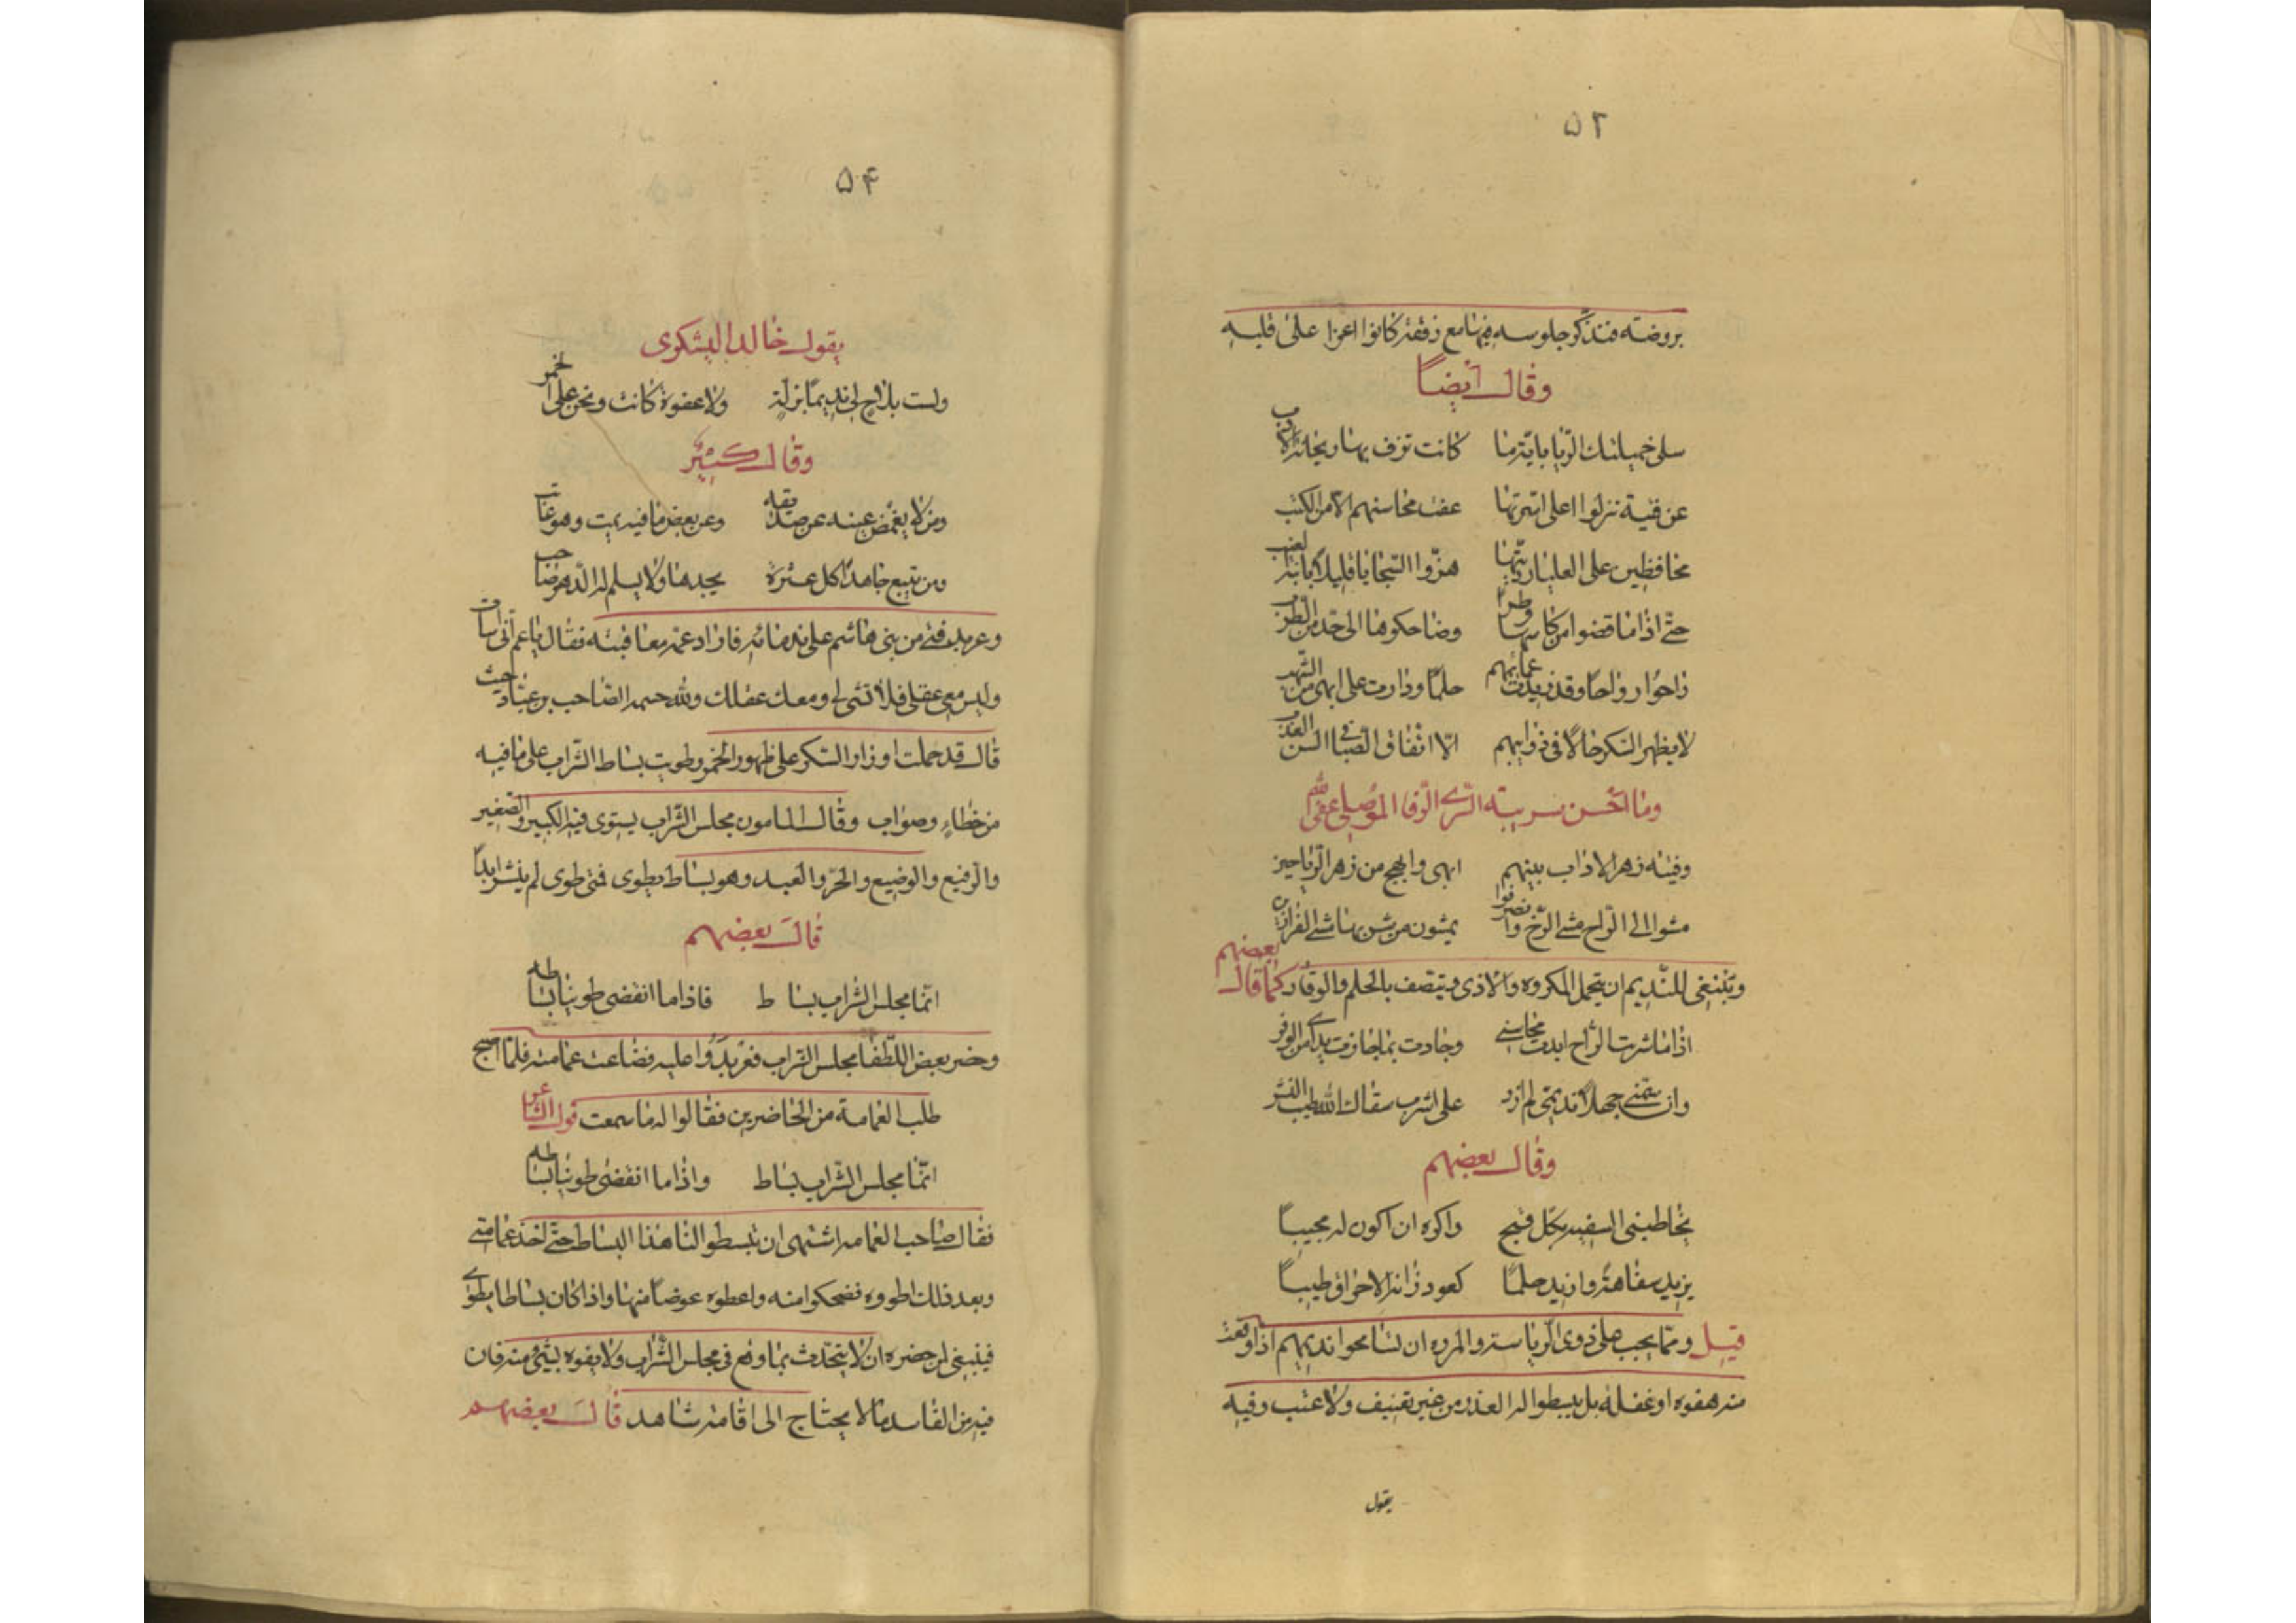 ۵۲
بروضته فتذكر جلوسه فيها مع رفقة كانوا اعزا على قلبه
وقال أيضاً
سلى خميلتك الريا باية ما كانت ترف بها ريحانة الادب
عن فتية نزلوا اعلى اسرتها عفت محاسنهم الا من الكتب
محافظين على العليا ربتما هزوا السجايا قليلا بابنة العنب
حتى اذا ما قضوا من كاسها وطرا وضاحكوها الى حد من الطرب
راحوا رواحا وقد زيدت عمائمهم حلما ودارت على ابهى من الشهب
لا يظهر السكر حالا في ذوايبهم الا التفاف الصبا في السن العذب
وما احسن السرى الرفا الموصلى عفى الله
وفتية زهر الاداب بينهم ابهى وابهج من زهر الرياحين
مشوا الى الراح مشى الرخ وانصرفوا يمشون من مشى الفرازين
وينبغى للنديم ان يتحمل المكروه والاذى ويتصف بالحلم والوقار كما قال بعضهم
اذا ما شربت الراح ابدت محاسنى وجادت بما حازت يداى من الوفر
وان سمنى جهلا نديمى لم ازد على اشرب سقاك الله طيب النشر
وقال بعضهم
يخاطبنى السفيه بكل قبيح واكره ان اكون له مجيباً
يزيد سفاهة وازيد حلماً كعود زاده الاحراق طيباً
قيل ومما يجب على ذوى الرياسة والمروه ان يسامحوا نديمهم اذا وقعت
منه هفوه او غفلة بل يبسطوا له العذر من غير تعنيف ولا عتب وفيه
يقول
۵۴
يقول خالد اليشكرى
ولست بلاح لى نديما بزلة ولا عفوة كانت ونحن على الخمر
وقال كثيّر
ومن لا يغمض عينه عن صديقه وعن بعض ما فيه يمت وهو عاتب
ومن يتبع جاهدا كل عثرة يجدها ولا يسلم له الدهر صاحب
وعربد فتى من بنى هاشم على ندمائه فاراد عمه معاقبته فقال يا عم انى اسات
وليس معى عقلى فلا تسئ لى ومعك عقلك ولله الصاحب بن عباد حيث
قال قد حملت اوزار السكر على ظهور الخمر وطويت بساط الشراب على ما فيه
من خطاء وصواب وقال المامون مجلس الشراب يستوى فيه الكبير والصغير
والرفيع والوضيع والحر والعبد وهو بساط يطوى فمتى طوى لم ينشر ابداً
قال بعضهم
انما مجلس الشراب بساط فاذا ما انقضى طوينا بساطه
وحضر بعض اللطفا مجلس الشراب فعربدوا عليه فضاعت عمامته فلما اصبح
طلب العمامة من الحاضرين فقالوا له ما سمعت قول الشاعر
انما مجلس الشراب بساط واذا ما انقضى طوينا بساطه
فقال صاحب العمامه اشتهى ان تبسطوا لنا هذا البساط حتى اخذ عمامتى
وبعد ذلك اطووه فضحكوا منه واعطوه عوضاً منها واذا كان بساطا يطوى
فينبغى لمن حضره ان لا يتحدث بما وقع فى مجلس الشراب ولا يفوه بشئ منه فان
فيه من الفاسد ما لا يحتاج الى اقامة شاهد قال بعضهم